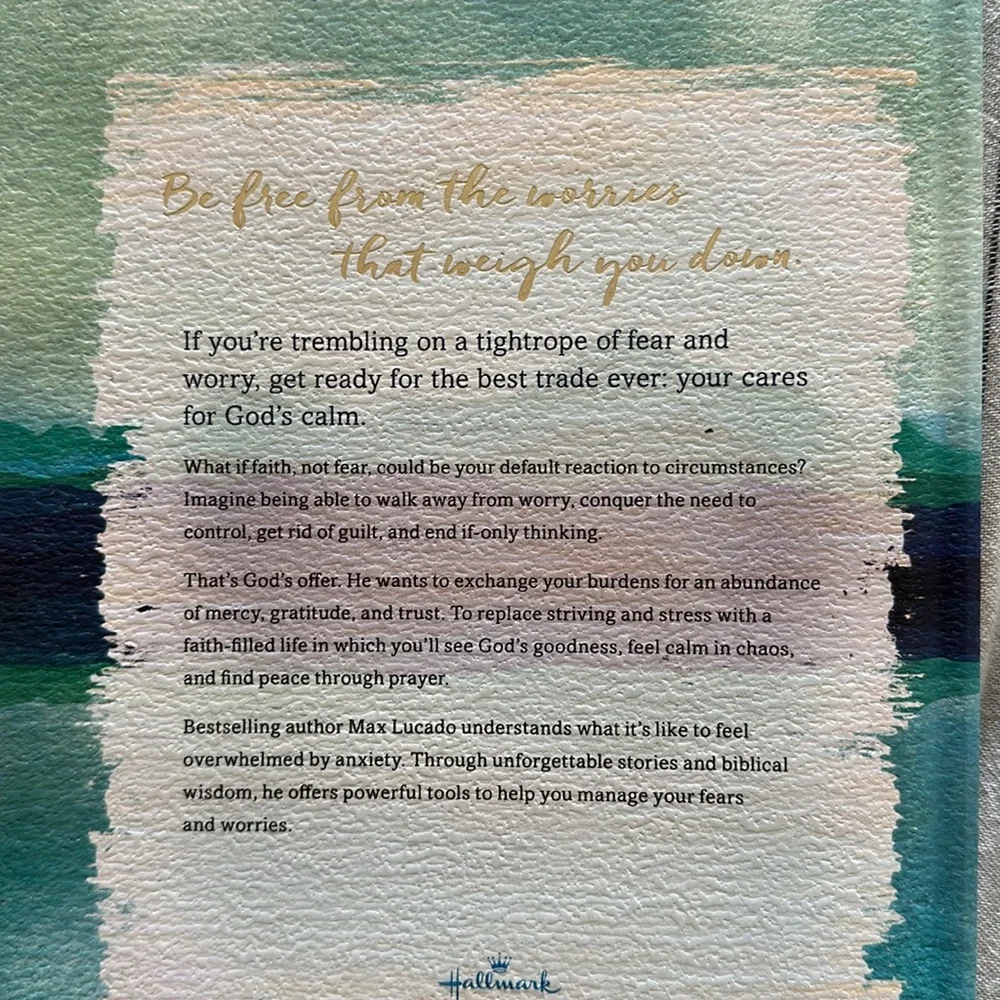 Be free from the worries
that weigh you down.
If you're trembling on a tightrope of fear and
worry, get ready for the best trade ever: your cares
for God's calm.
What if faith, not fear, could be your default reaction to circumstances?
Imagine being able to walk away from worry, conquer the need to
control, get rid of guilt, and end if-only thinking.
That's God's offer. He wants to exchange your burdens for an abundance
of mercy, gratitude, and trust. To replace striving and stress with a
faith-filled life in which you'll see God's goodness, feel calm in chaos,
and find peace through prayer.
Bestselling author Max Lucado understands what it's like to feel
overwhelmed by anxiety. Through unforgettable stories and biblical
wisdom, he offers powerful tools to help you manage your fears
and worries.
Hallmark